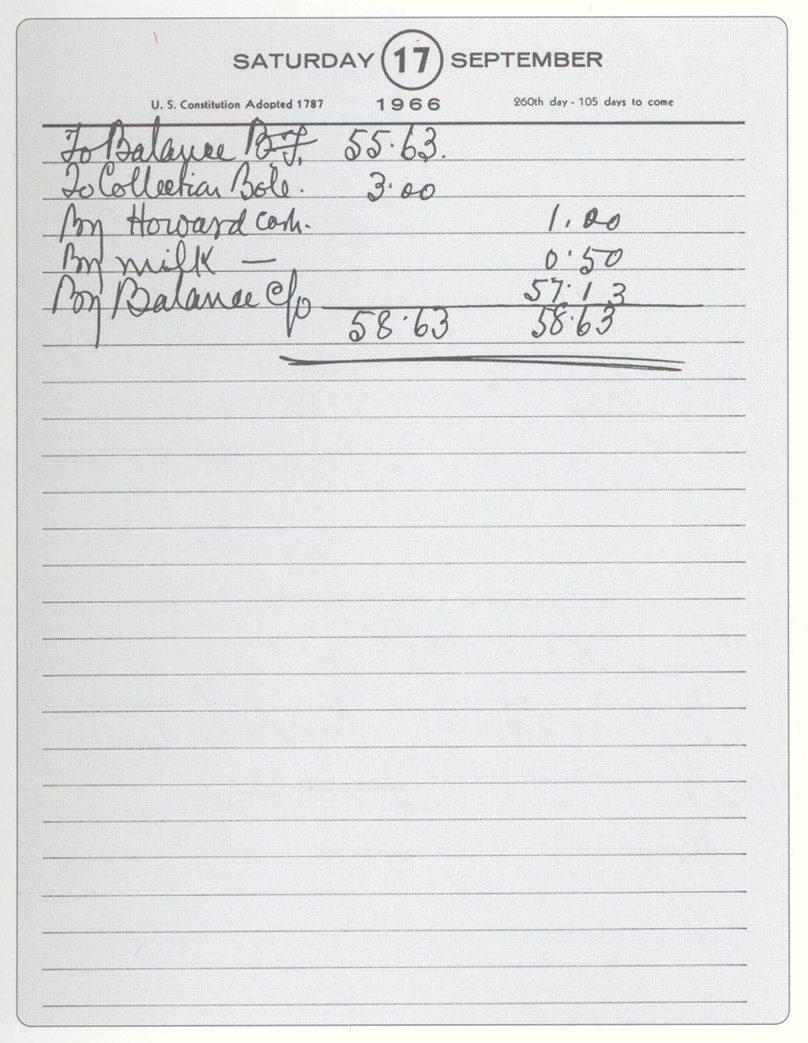 SATURDAY 17 SEPTEMBER
U. S. Constitution Adopted 1787 1966 260th day - 105 days to come
To Balance B/f, 55.63.
To Collection Bole. 3.00
By Howard cash. 1.00
By milk — 0.50
By Balance c/o 57.13
58.63 58.63